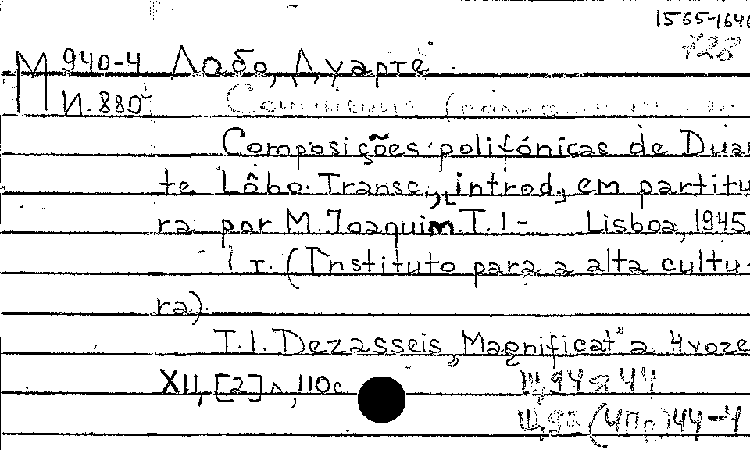 1565-1646
728
М 940-4 Лобо, Дуарте.
И.880
Composições polifónicas de Duar-
te Lôbo. Transc., introd., em partitu-
ra por M. Joaquim T.1- Lisboa, 1945.
1 т. (Instituto para a alta cultu-
ra)
T.1. Dezasseis „Magnificat" a 4 voze
XII, [2] л, 110с